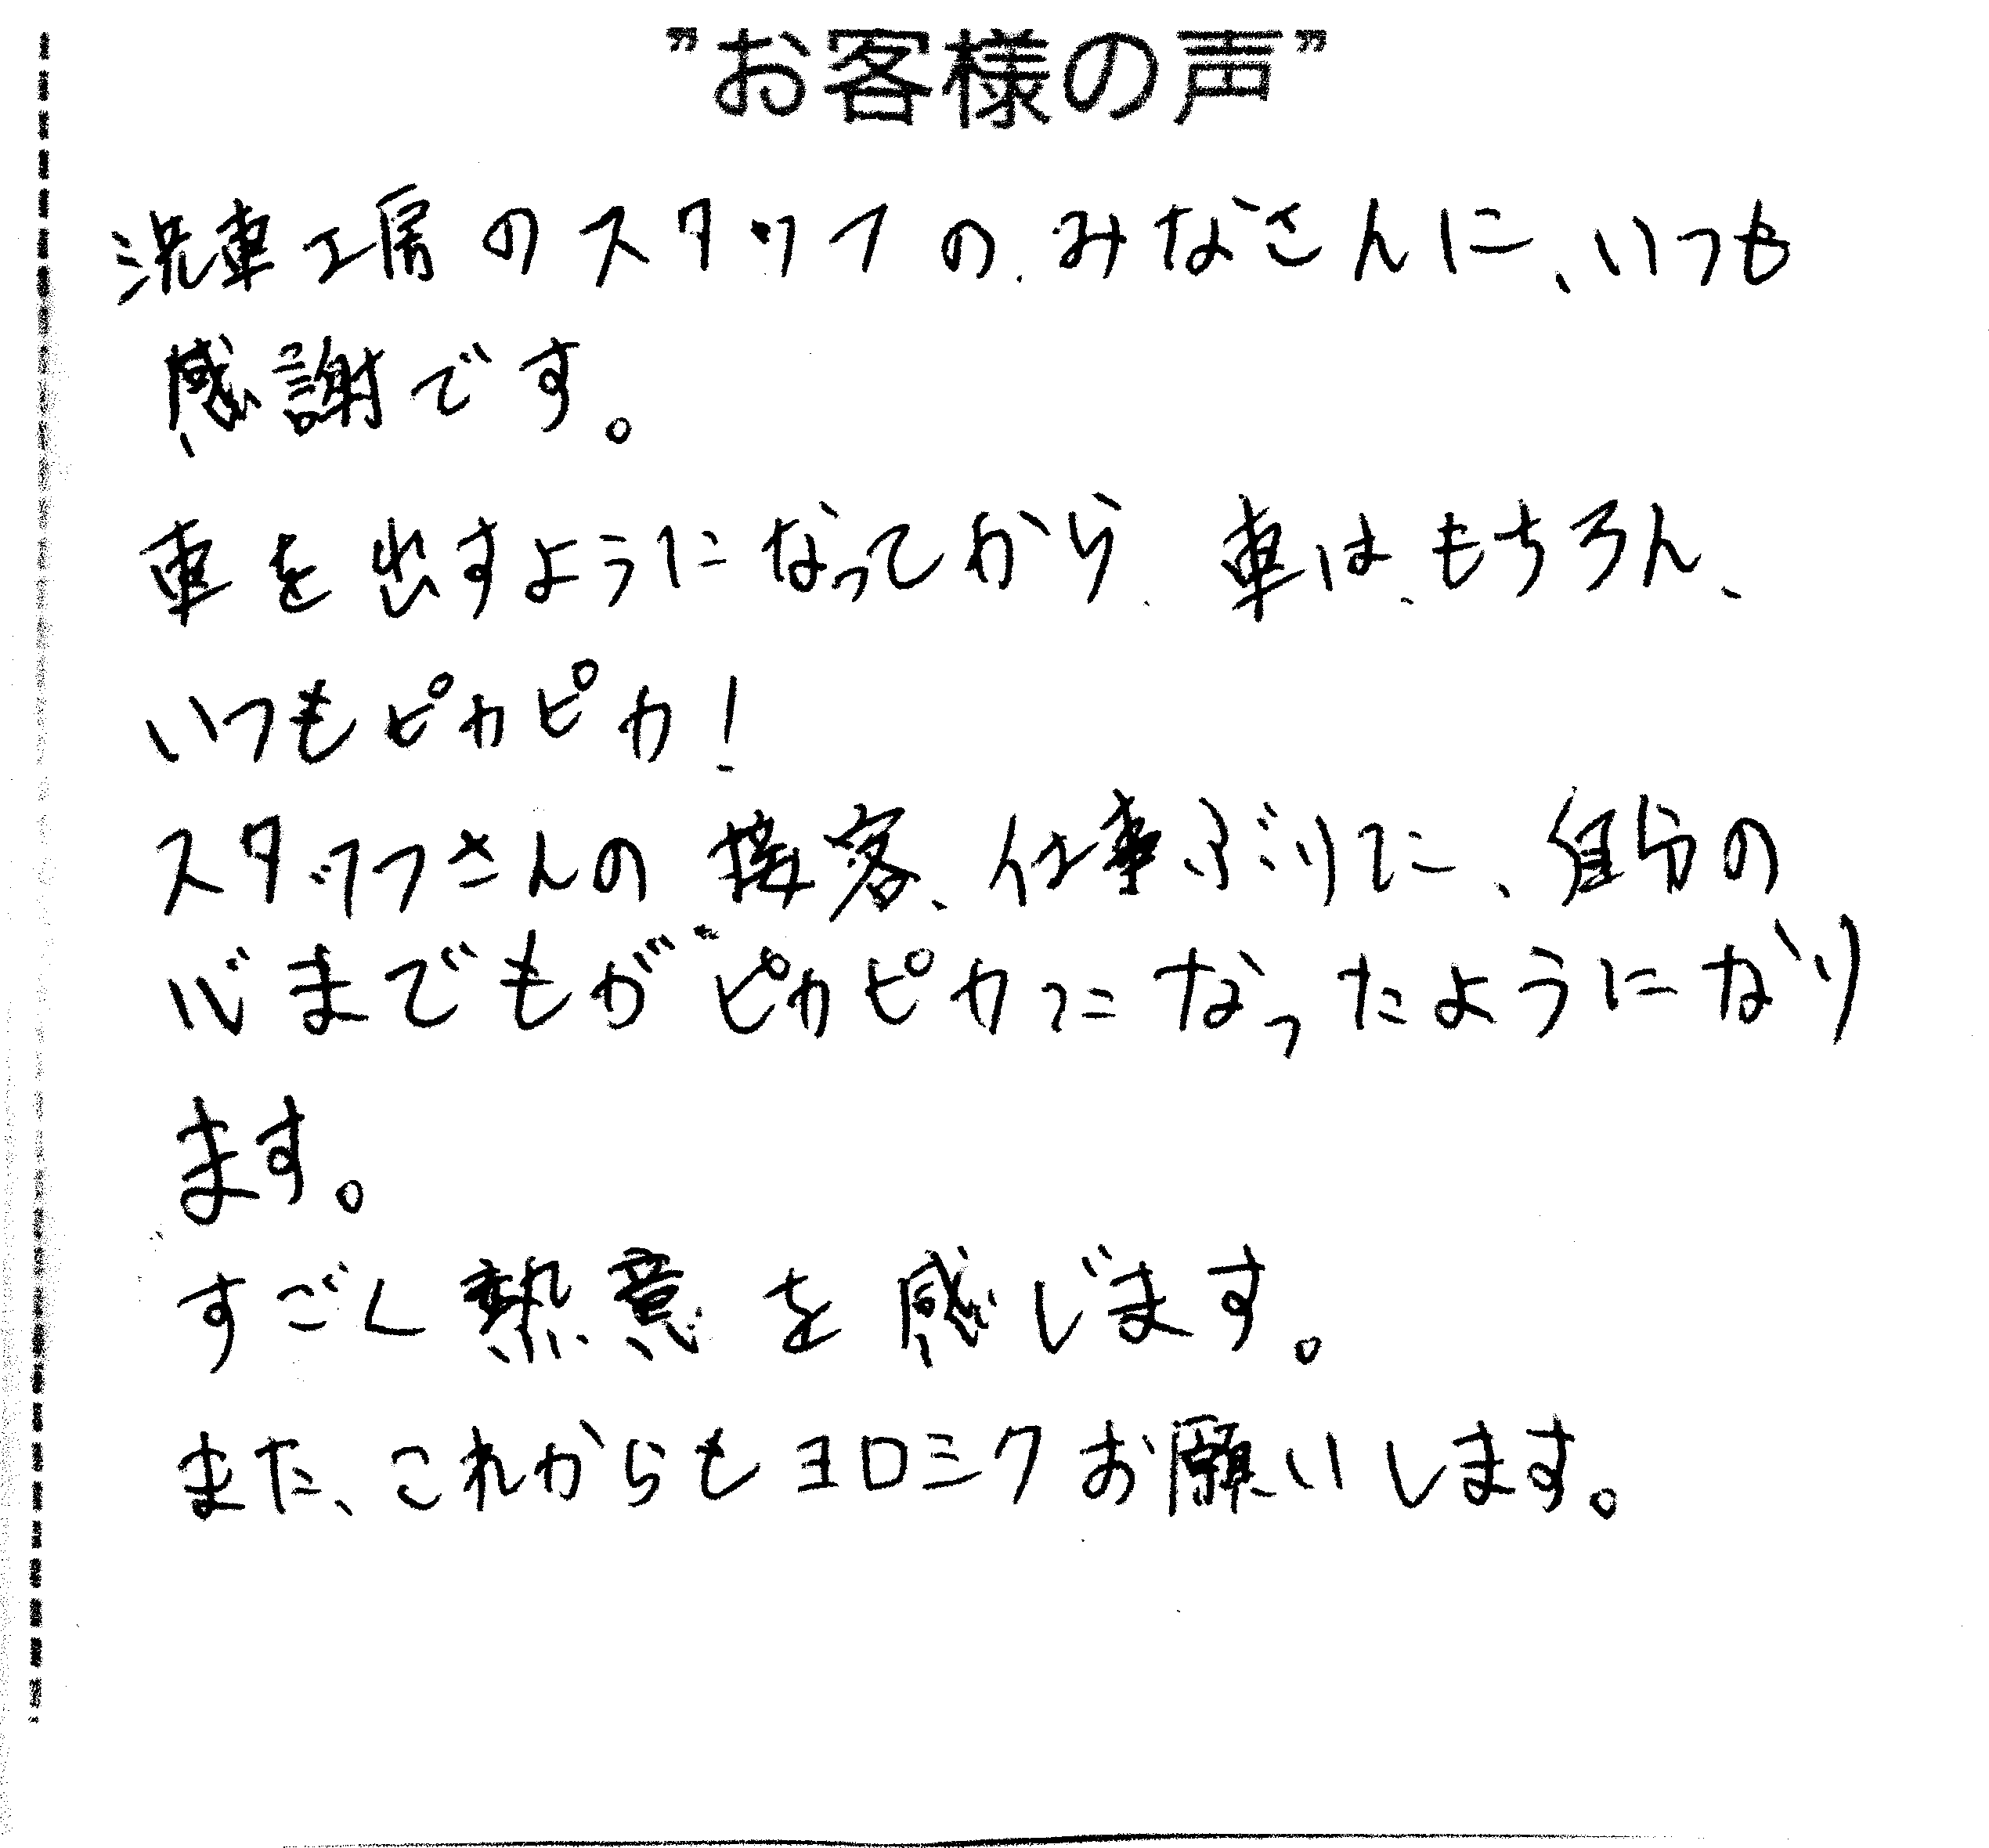 "お客様の声"
洗車工房のスタッフの、みなさんに、いつも
感謝です。
車を出すようになってから、車は、もちろん、
いつもピカピカ!
スタッフさんの接客、仕事ぶりに、自分の
心までもがピカピカになったようになり
ます。
すごく熱意を感じます。
また、これからもヨロシクお願いします。